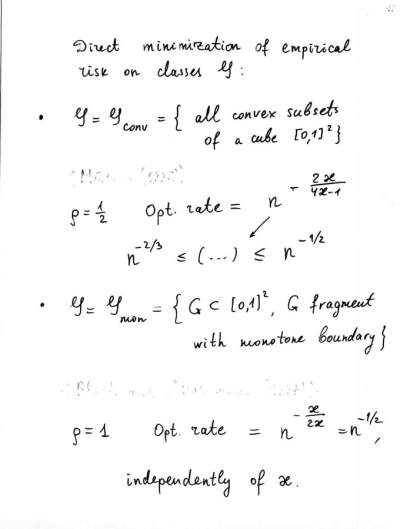 Direct minimization of empirical
risk on classes 𝒢 :
• 𝒢 = 𝒢_conv = { all convex subsets
of a cube [0,1]² }
ρ = 1/2 Opt. rate = n^{- 2æ/(4æ-1)}
n^{-2/3} ≤ (...) ≤ n^{-1/2}
• 𝒢 = 𝒢_mon = { G ⊂ [0,1]², G fragment
with monotone boundary }
ρ = 1 Opt. rate = n^{- æ/2æ} = n^{-1/2},
independently of æ.